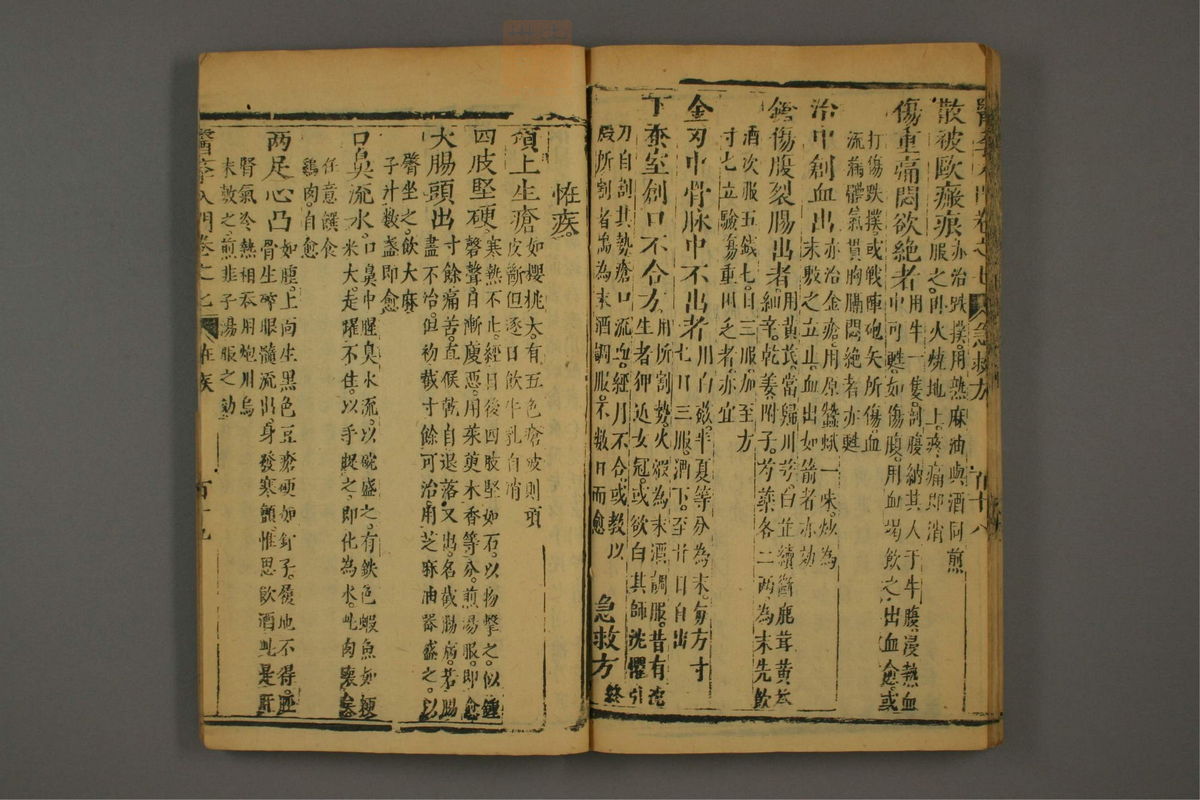 散被毆瘢痕亦治跌撲用熱麻油與酒同煎
服之臥火燒地上疼痛即消
傷重痛悶欲絕者用牛一隻剖腹納其人于牛腹浸熱血
中可甦如傷腹用血竭飲之出血愈或
打傷跌撲或戰陣砲矢所傷血
流滿體氣貫胸膈悶絕者亦甦
治中創血出亦治金瘡用原蠶蛾一味炒為
末敷之立止血出如箭者亦効
鎗傷腹裂腸出者用黃芪當歸川芎白芷續斷鹿茸黃芩
細辛乾姜附子芍藥各二兩為末先飲
酒次服五錢七日三服加至方
寸七立驗傷重困乏者亦宜
金刃中骨脉中不出者用白蘞半夏等分為末每方寸
七日三服酒下至廿日自出
下蚕室創口不合方用所割勢火煅為末酒調服昔有流
生者狎近女冠或欲白其師流懼引
刀自割其勢瘡口流血經月不合或教以
煅所割者為末酒調服不數日而愈
急救方終
怪疾
項上生瘡如櫻桃大有五色瘡破則項
皮斷但逐日飲牛乳自消
四肢堅硬寒熱不止經日後四肢堅如石以物擊之似鐘
磬聲自漸瘦惡用茱萸木香等分煎湯服即愈
大腸頭出寸餘痛苦直候乾自退落又出名截腸病若腸
盡不治但初截寸餘可治用芝麻油器盛之以
臀坐之飲大麻
子汁數盞即愈
口鼻流水口鼻中腥臭水流以碗盛之有鉄色蝦魚如粳
米大走躍不住以手捉之即化為水此肉壞
任意饌食
鷄肉自愈
兩足心凸如腫上面生黑色豆瘡硬如釘子履地不得
骨生碎眼髓流出身發寒顫惟思飲酒此是肝
腎氣冷熱相吞用炮川烏
末敷之煎韭子湯服之効
醫 入門卷之七 怪疾 百十九